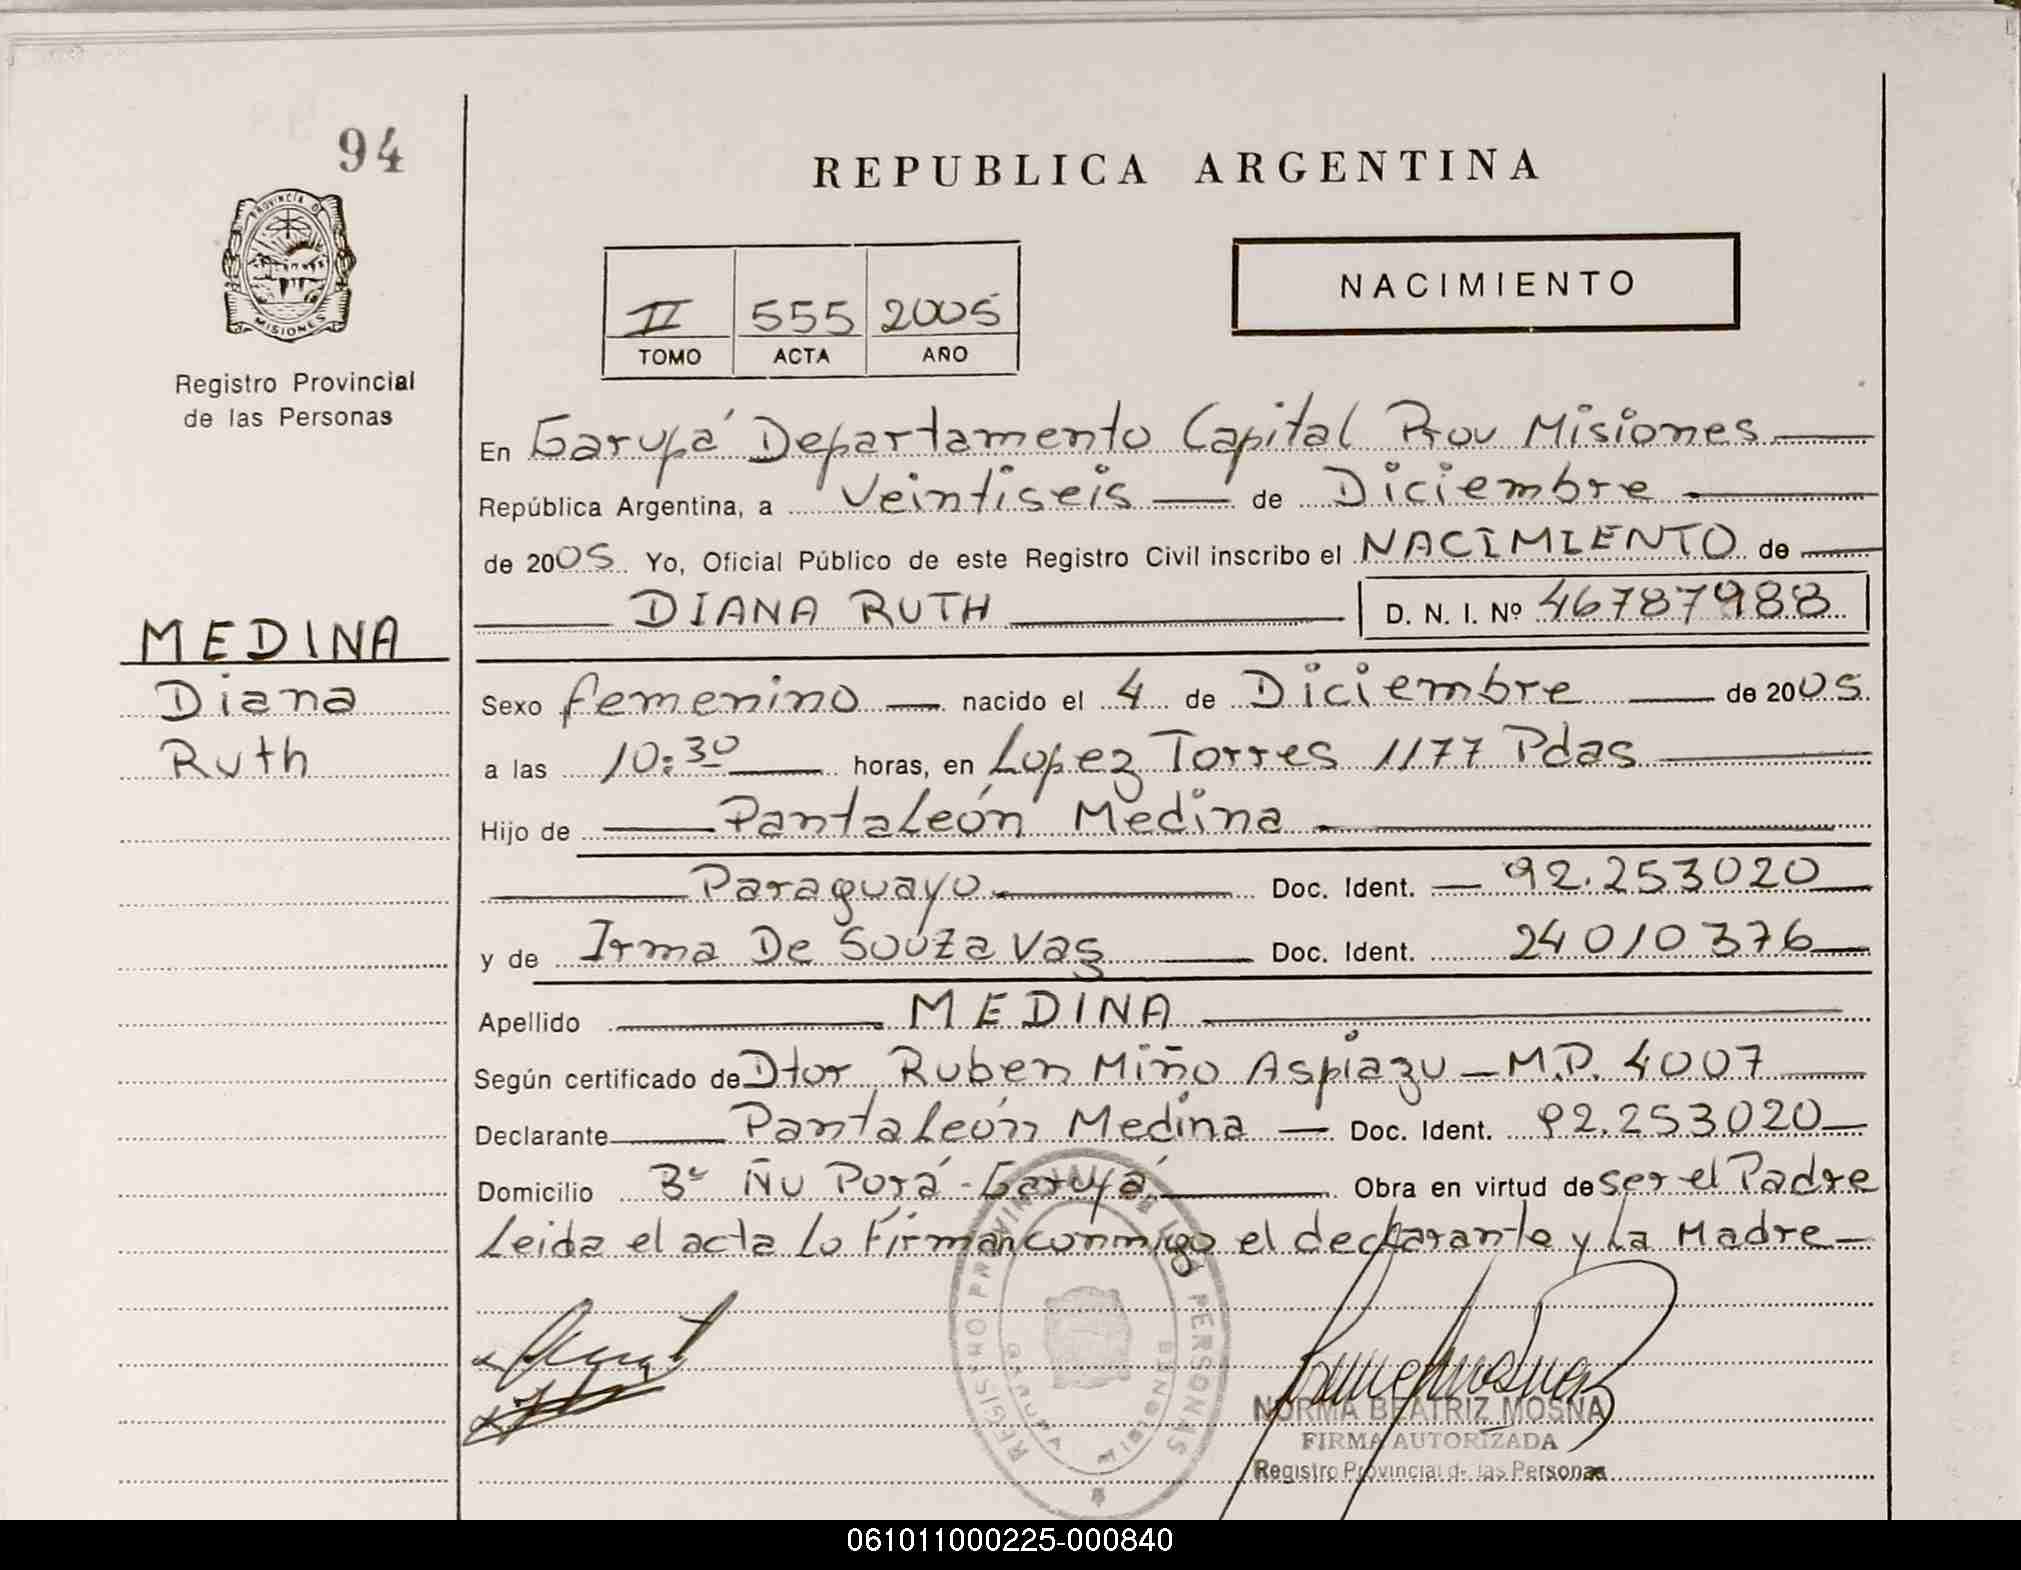 94
REPUBLICA ARGENTINA
PROVINCIA DE
MISIONES
Registro Provincial
de las Personas
NACIMIENTO
II 555 2005
TOMO ACTA AÑO
En Garupá Departamento Capital Prov Misiones
República Argentina, a Veintiseis de Diciembre
de 2005 Yo, Oficial Público de este Registro Civil inscribo el NACIMIENTO de
DIANA RUTH D. N. I. Nº 46787988
MEDINA
Diana
Ruth
Sexo femenino nacido el 4 de Diciembre de 2005
a las 10:30 horas, en Lopez Torres 1177 Pdas
Hijo de Pantaleón Medina
Paraguayo Doc. Ident. 92.253020
y de Irma De Souza Vas Doc. Ident. 24010376
Apellido MEDINA
Según certificado de Dtor Ruben Miño Aspiazu - M.P. 4007
Declarante Pantaleón Medina Doc. Ident. 92.253020
Domicilio Bº Ñu Porá - Garupá Obra en virtud de ser el Padre
Leida el acta lo Firman conmigo el declarante y La Madre
REGISTRO PROVINCIAL DE LAS PERSONAS
GARUPA MISIONES
NORMA BEATRIZ MOSNA
FIRMA AUTORIZADA
Registro Provincial de las Personas
061011000225-000840